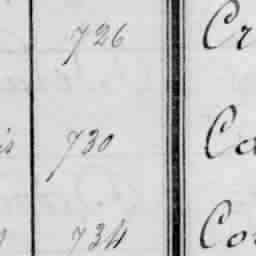 726 Cr
is 730 Ca
734 Co